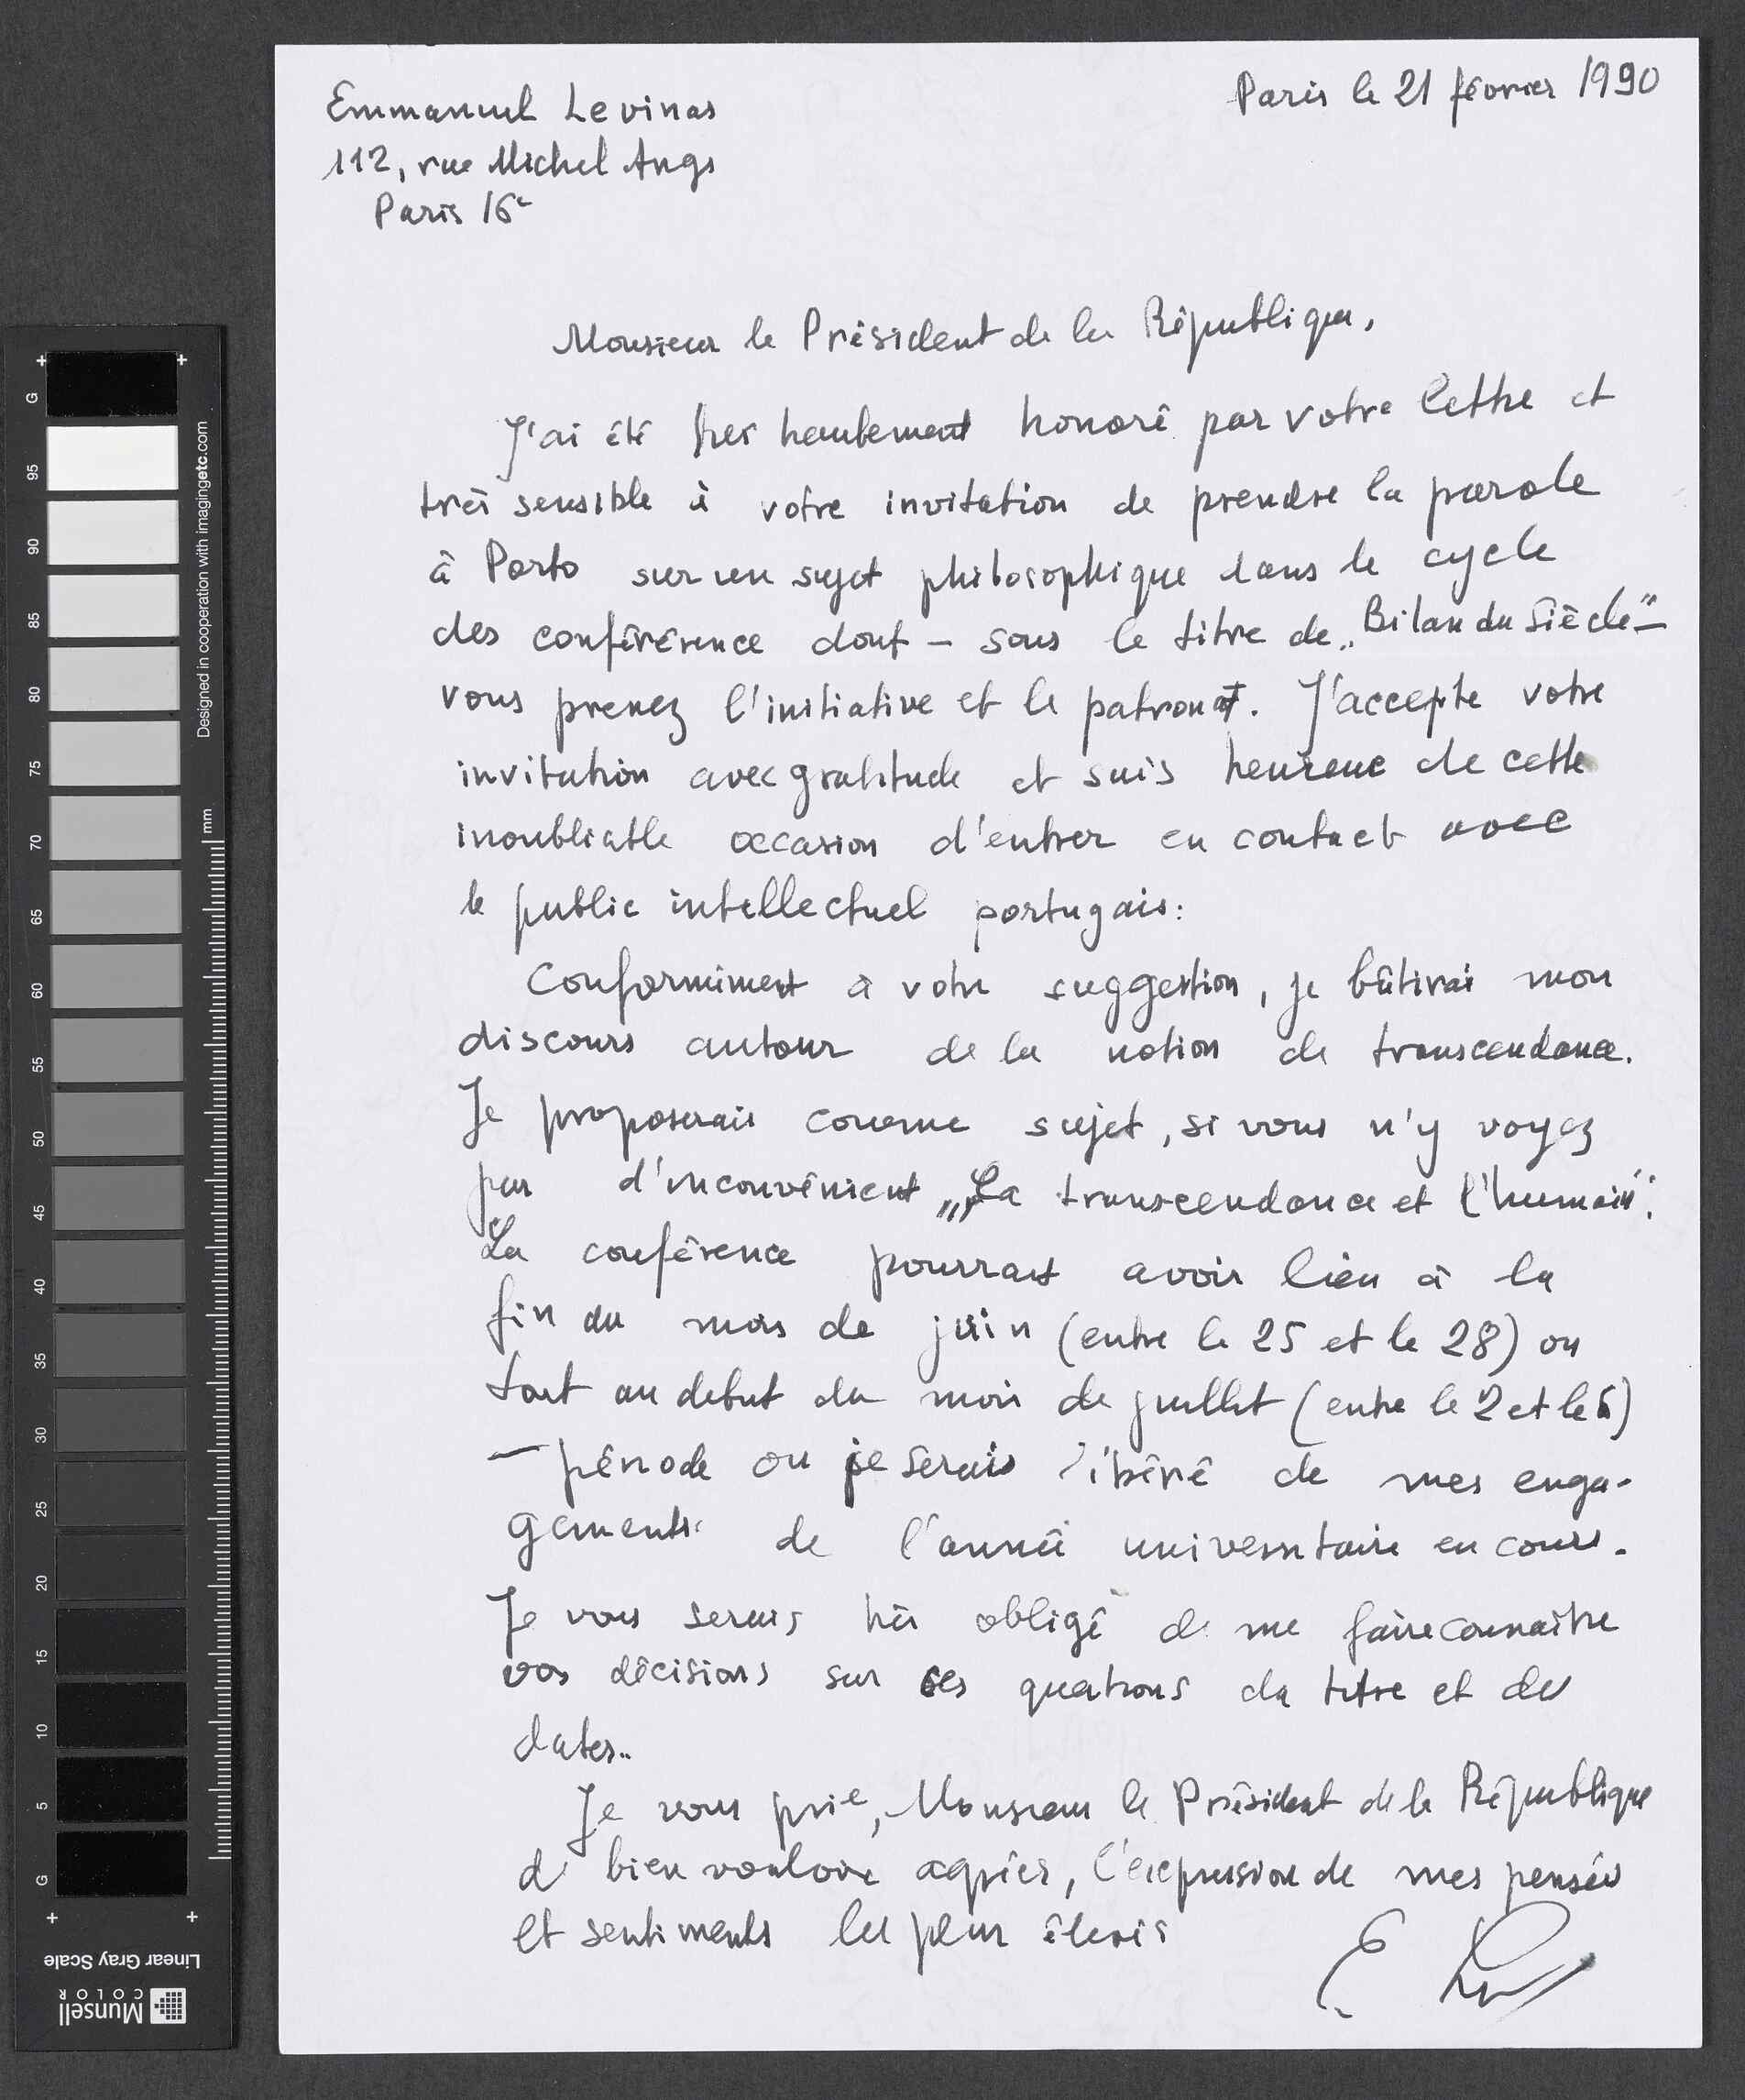 Emmanuel Levinas
112, rue Michel Ange
Paris 16e
Paris le 21 février 1990
Monsieur le Président de la République,
J'ai été très hautement honoré par votre lettre et
très sensible à votre invitation de prendre la parole
à Porto sur un sujet philosophique dans le cycle
des conférence dont – sous le titre de „Bilan du Siècle" –
vous prenez l'initiative et le patronat. J'accepte votre
invitation avec gratitude et suis heureux de cette
inoubliable occasion d'entrer en contact avec
le public intellectuel portugais.
Conformément à votre suggestion, je bâtirai mon
discours autour de la notion de transcendance.
Je proposerais comme sujet, si vous n'y voyez
pas d'inconvénient „La transcendance et l'humain".
La conférence pourrait avoir lieu à la
fin du mois de juin (entre le 25 et le 28) ou
tout au debut du mois de juillet (entre le 2 et le 6)
– période ou je serais libéré de mes enga-
gements de l'année universitaire en cours.
Je vous serais très obligé de me faire connaître
vos décisions sur ces questions du titre et des
dates.
Je vous prie, Monsieur le Président de la République
de bien vouloir agréer, l'expression de mes pensées
et sentiments les plus élevés
G 95 90 85 80 75 70 65 60 55 50 45 40 35 30 25 20 15 10 5 G
Designed in cooperation with imagingetc.com
mm
Linear Gray Scale
Munsell
COLOR